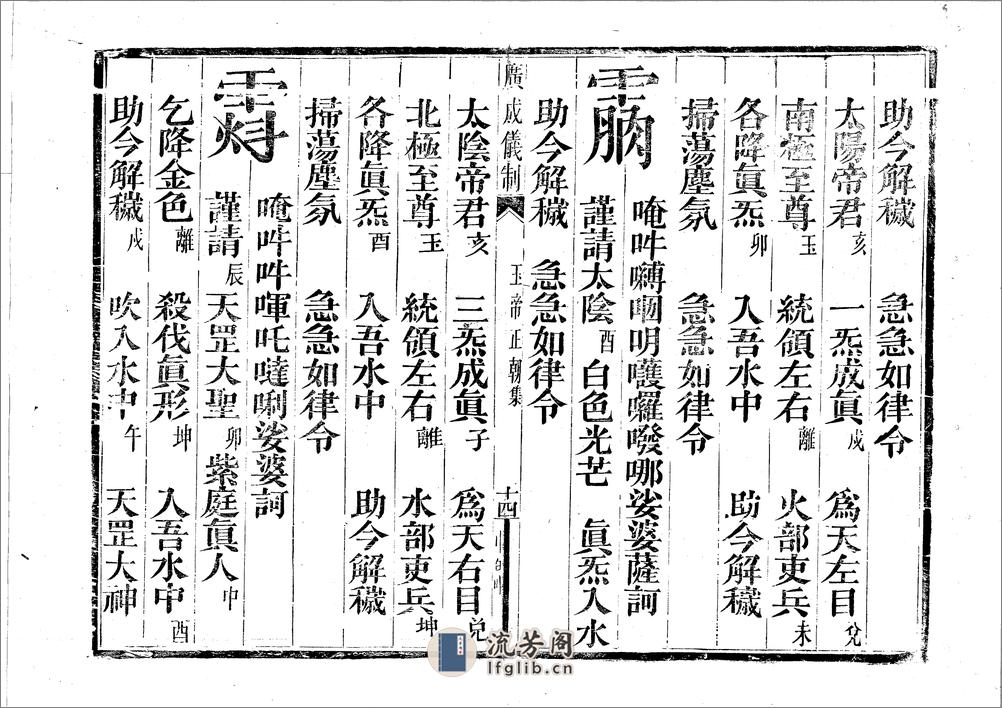 助今解穢 急急如律令
太陽帝君亥 一炁成眞戌 爲天左目兌
南極至尊玉 統領左右離 火部吏兵未
各降眞炁卯 入吾水中 助今解穢
掃蕩塵氛 急急如律令
唵吽嚩嚪明嚾囉㗶哪娑婆薩訶
謹請太陰酉 白色光芒 眞炁入水
助今解穢 急急如律令
廣成儀制 玉帝正朝集 十四
太陰帝君亥 三炁成眞子 爲天右目兌
北極至尊玉 統領左右離 水部吏兵坤
各降眞炁酉 入吾水中 助今解穢
掃蕩塵氛 急急如律令
唵吽吽喗吒噠唎娑婆訶
謹請辰 天罡大聖卯 紫庭眞人中
乞降金色離 殺伐眞形坤 入吾水中酉
助今解穢戌 吹入水中午 天罡大神
流芳阁
lfglib.cn